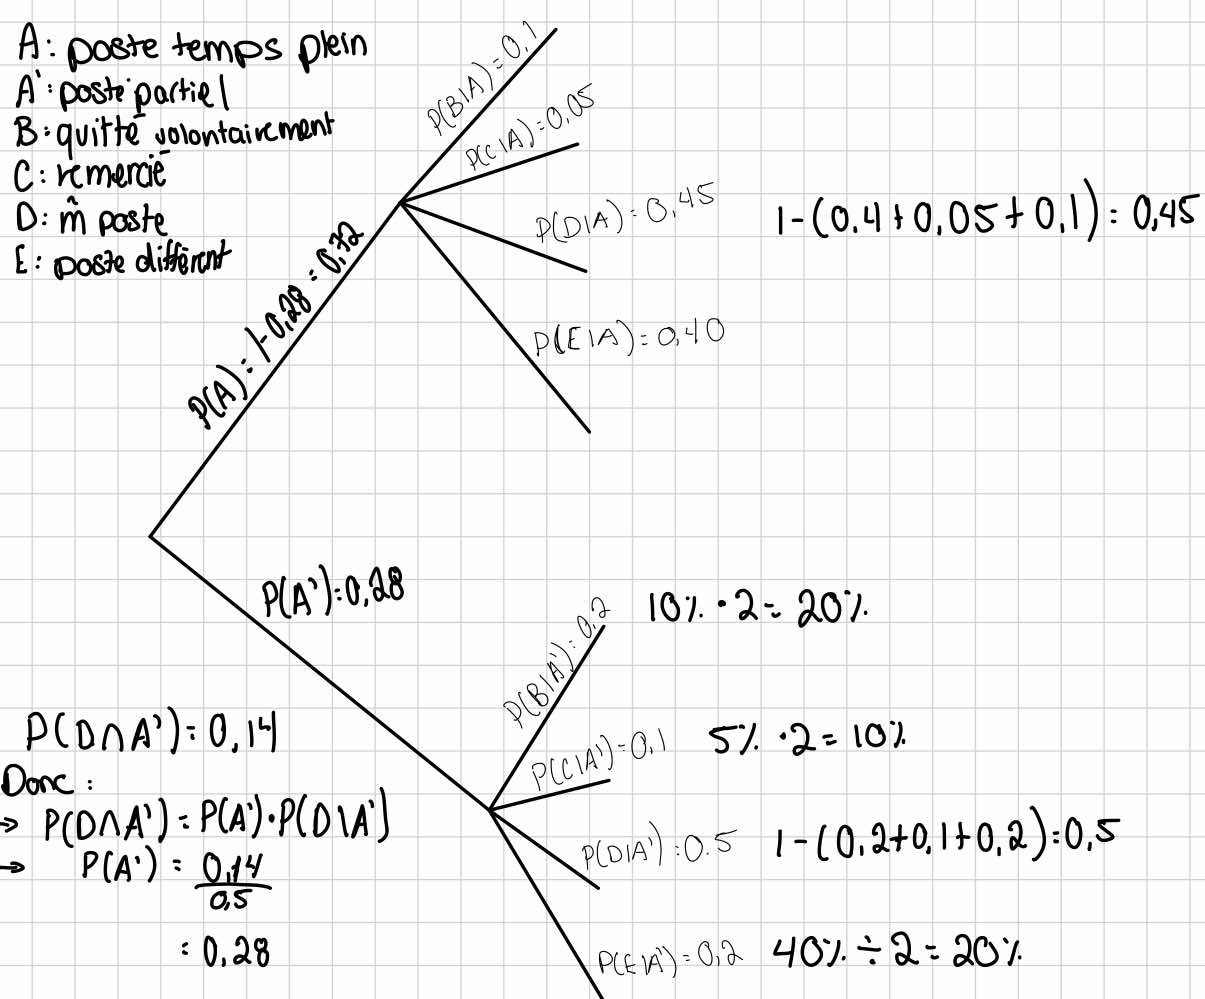 A: poste temps plein
A': poste partiel
B: quitté volontairement
C: remercié
D: m̂ poste
E: poste différent
P(B|A)=0,1
P(C|A)=0,05
P(D|A)=0,45
1-(0,4+0,05+0,1)=0,45
P(E|A)=0,40
P(A)=1-0,28=0,72
P(A')=0,28
P(B|A')=0,2
10%·2=20%
P(C|A')=0,1
5%·2=10%
P(D|A')=0.5
1-(0,2+0,1+0,2)=0,5
P(E|A')=0,2
40%÷2=20%
P(D∩A')=0,14
Donc:
→ P(D∩A')=P(A')·P(D|A')
→ P(A')=0,14/0,5
=0,28